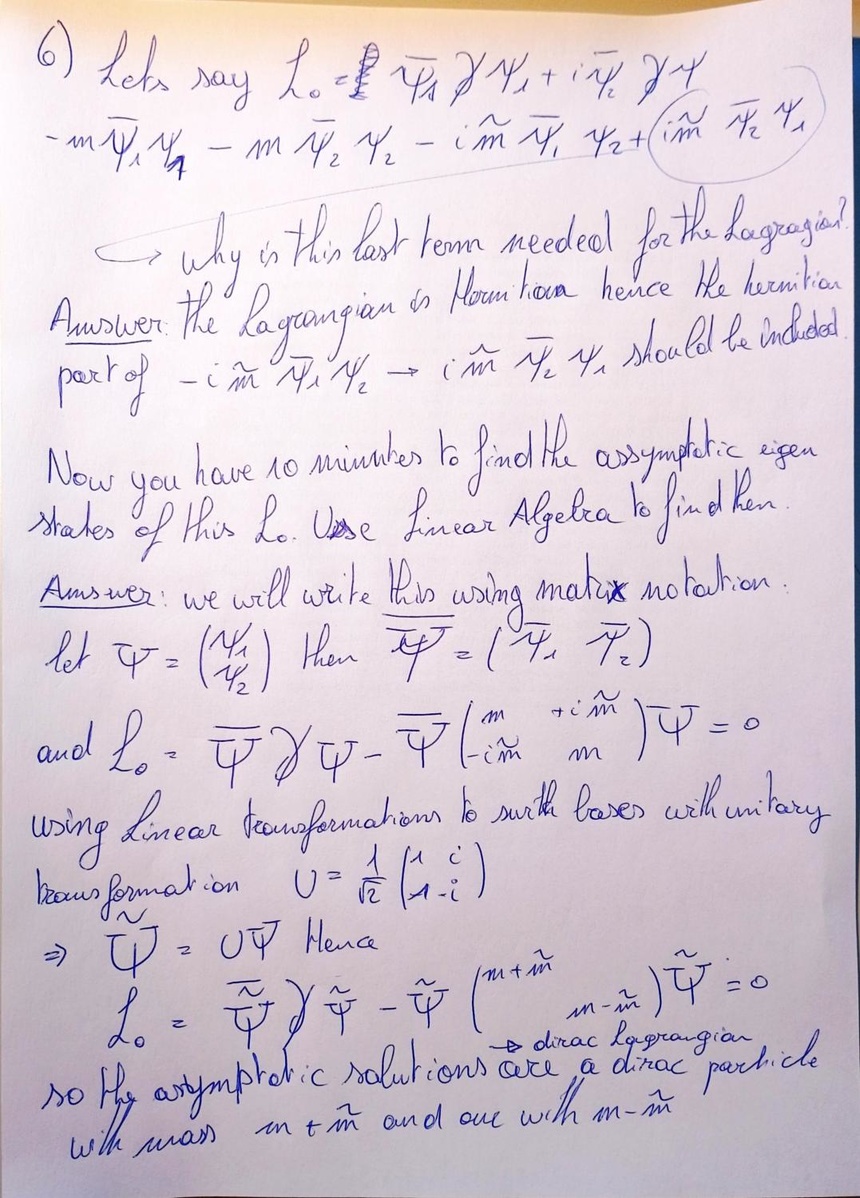 6) Lets say L₀ = ψ̄₁ ∂̸ ψ₁ + i ψ̄₂ ∂̸ ψ
- m ψ̄₁ ψ₁ - m ψ̄₂ ψ₂ - i m̃ ψ̄₁ ψ₂ + i m̃ ψ̄₂ ψ₁
→ why is this last term needed for the Lagragian?
Answer: the Lagrangian is Hermitian hence the hermitian
part of - i m̃ ψ̄₁ ψ₂ → i m̃ ψ̄₂ ψ₁ should be included.
Now you have 10 minutes to find the assymptotic eigen
states of this L₀. Use Linear Algebra to find then.
Answer: we will write this using matrix notation:
let Ψ = (ψ₁ ψ₂) then Ψ̄ = (ψ̄₁ ψ̄₂)
and L₀ = Ψ̄ ∂̸ Ψ - Ψ̄ (m +i m̃ -i m̃ m) Ψ = 0
using Linear transformations to swith bases with unitary
transformation U = 1/√2 (1 i 1 -i)
⇒ Ψ̃ = UΨ Hence
L₀ = Ψ̃̄ ∂̸ Ψ̃ - Ψ̃ (m + m̃ m - m̃) Ψ̃ = 0
→ dirac Lagrangian
so the asymptotic solutions are a dirac particle
with mass m + m̃ and one with m - m̃